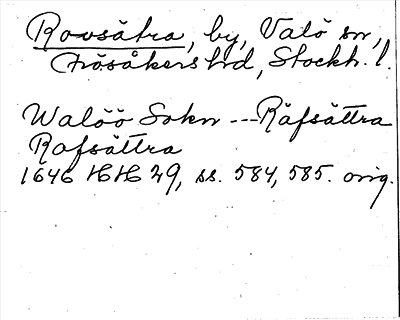 Rovsätra, by, Valö sn,
Frösåkers hd, Stockh. l.
Walöö Sokn --- Räfsättra
Rafsättra
1646 HH 29, ss. 584, 585. orig.